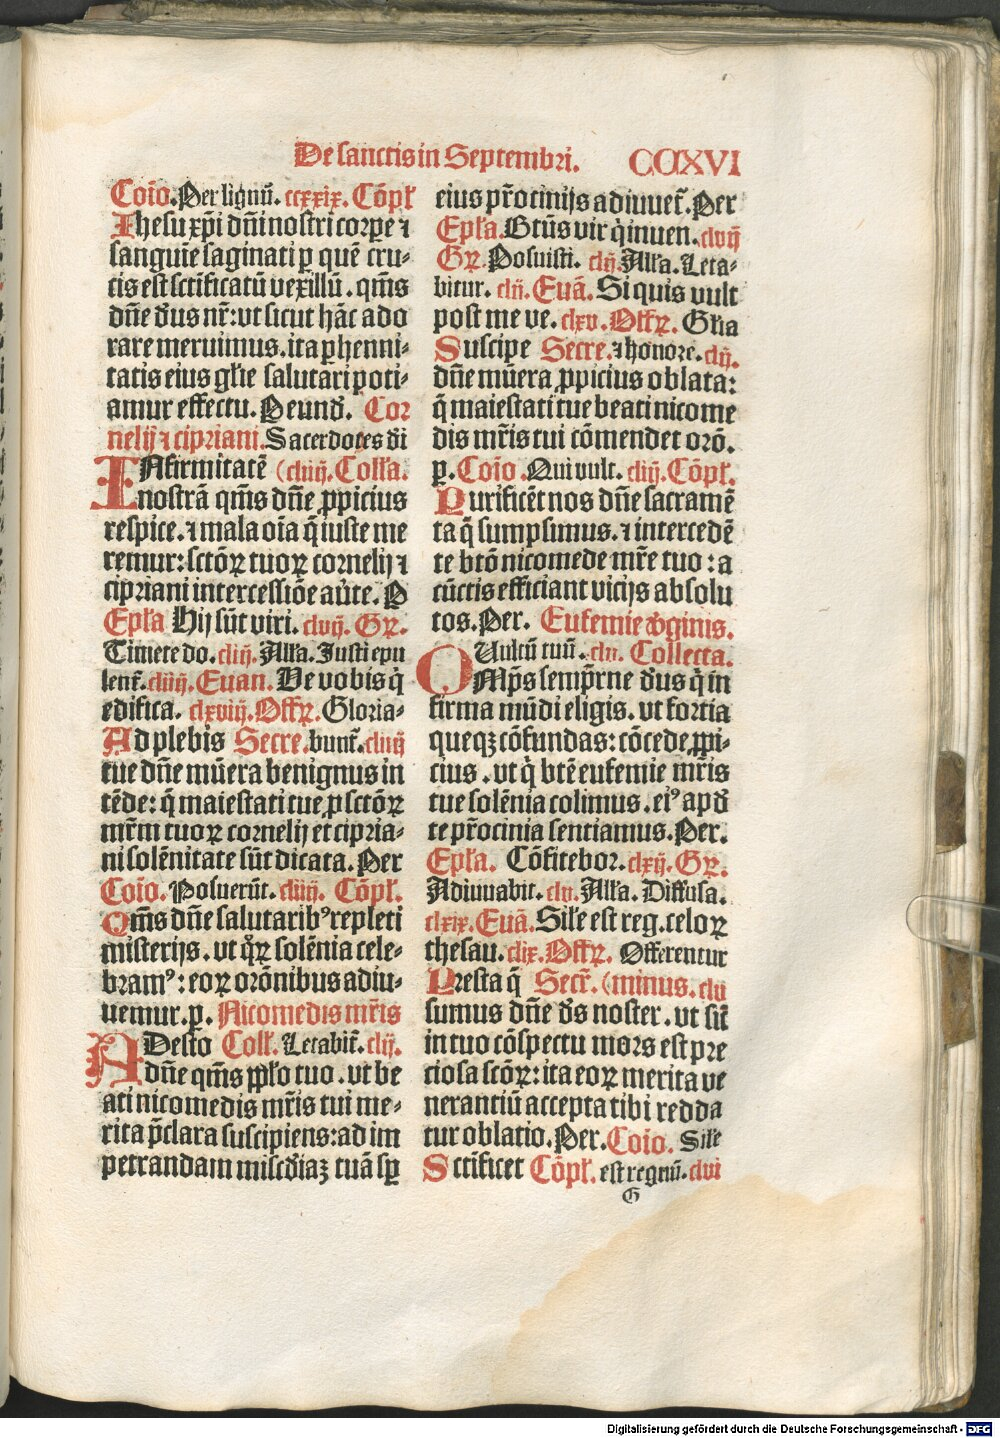 De sanctis in Septembri. CCXVI
Coīo. Per lignū. ccxxix. Cōpł
Ihesu xp̄i dn̄i nostri corꝑe ⁊
sanguīe saginati ꝑ quē cru⸗
cis est sct̄ificatū vexillū. qm̄s
dn̄e de᷒us nr̄: vt sicut hāc ado
rare meruimus. ita ꝑhenni⸗
tatis eius gl̄ie salutari poti⸗
amur effectu. P eund. Cor
nelij ⁊ cipriani. Sacerdotes di
INfirmitatē (cliiij. Coll̄a.
nostrā qm̄s dn̄e ꝓpicius
respice. ⁊ mala oīa q̄ iuste me
remur: sctōꝝ tuoꝝ cornelij ⁊
cipriani intercessiōe aūte. P
Epl̄a Hij sūt viri. clvij. Gꝝ.
Timete do. cliij. All̄a. Iusti epu
lent᷑. cliiij. Euan. Ve vobis q̄
edifica. clxviij. Offꝝ. Gloria⸗
Ad plebis Secre. bunt᷑. cliiij
tue dn̄e mūera benignus in
tēde: q̄ maiestati tue ꝓ sctōꝝ
mr̄m tuoꝝ cornelij et cipria⸗
ni solēnitate sūt dicata. Per
Coīo. Posuerūt. cliiij. Cōpł.
Qm̄s dn̄e salutaribꝰ repleti
misterijs. vt q̄ꝝ solēnia cele⸗
bramꝰ: eoꝝ orōnibus adiu⸗
uemur. ꝑ. Nicomedis mr̄is
ADesto Coll̄. Letabit᷑. clij.
dn̄e qm̄s pp̄lo tuo. vt be
ati nicomedis mr̄is tui me⸗
rita p̄clara suscipiens: ad im
petrandam misc̄diaꝫ tuā sꝑ
eius pr̄ocinijs adiuuet᷑. Per
Epl̄a. Bt̄us vir q̄ inuen. clvij
Gꝝ. Posuisti. clij. All̄a. Leta⸗
bitur. clij. Euā. Si quis vult
post me ve. clxv. Offꝝ. Gl̄ia
Suscipe Secre. ⁊ honore. clij.
dn̄e mūera ꝓpicius oblata:
q̄ maiestati tue beati nicome
dis mr̄is tui cōmendet orō.
ꝑ. Coīo. Qui vult. cliij. Cōpł.
Purificēt nos dn̄e sacramē
ta q̄ sumpsimus. ⁊ intercedē
te bt̄o nicomede mr̄e tuo: a
cūctis efficiant vicijs absolu
tos. Per. Eufemie v̄ginis.
Vultū tuū. clv. Collecta.
OMp̄s semp̄rne de᷒us q̄ in
firma mūdi eligis. vt fortia
queqꝫ cōfundas: cōcede ꝓpi⸗
cius. vt q̄ bt̄e eufemie mr̄is
tue solēnia colimus. eiꝰ apd
te pr̄ocinia sentiamus. Per.
Epl̄a. Cōfitebor. clxij. Gꝝ.
Adiuuabit. clv. All̄a. Diffusa.
clxix. Euā. Sil̄e est reg. celoꝝ
thesau. clix. Offꝝ. Offerentur
Presta q̄ Secr̄. (minus. clv
sumus dn̄e de᷒s noster. vt sit᷑
in tuo cōspectu mors est pre
ciosa sc̄oꝝ: ita eoꝝ merita ve
nerantiū accepta tibi redda
tur oblatio. Per. Coīo. Sil̄e
Sct̄ificet Cōpł. est regnū. clvi
G
Digitalisierung gefördert durch die Deutsche Forschungsgemeinschaft - DFG